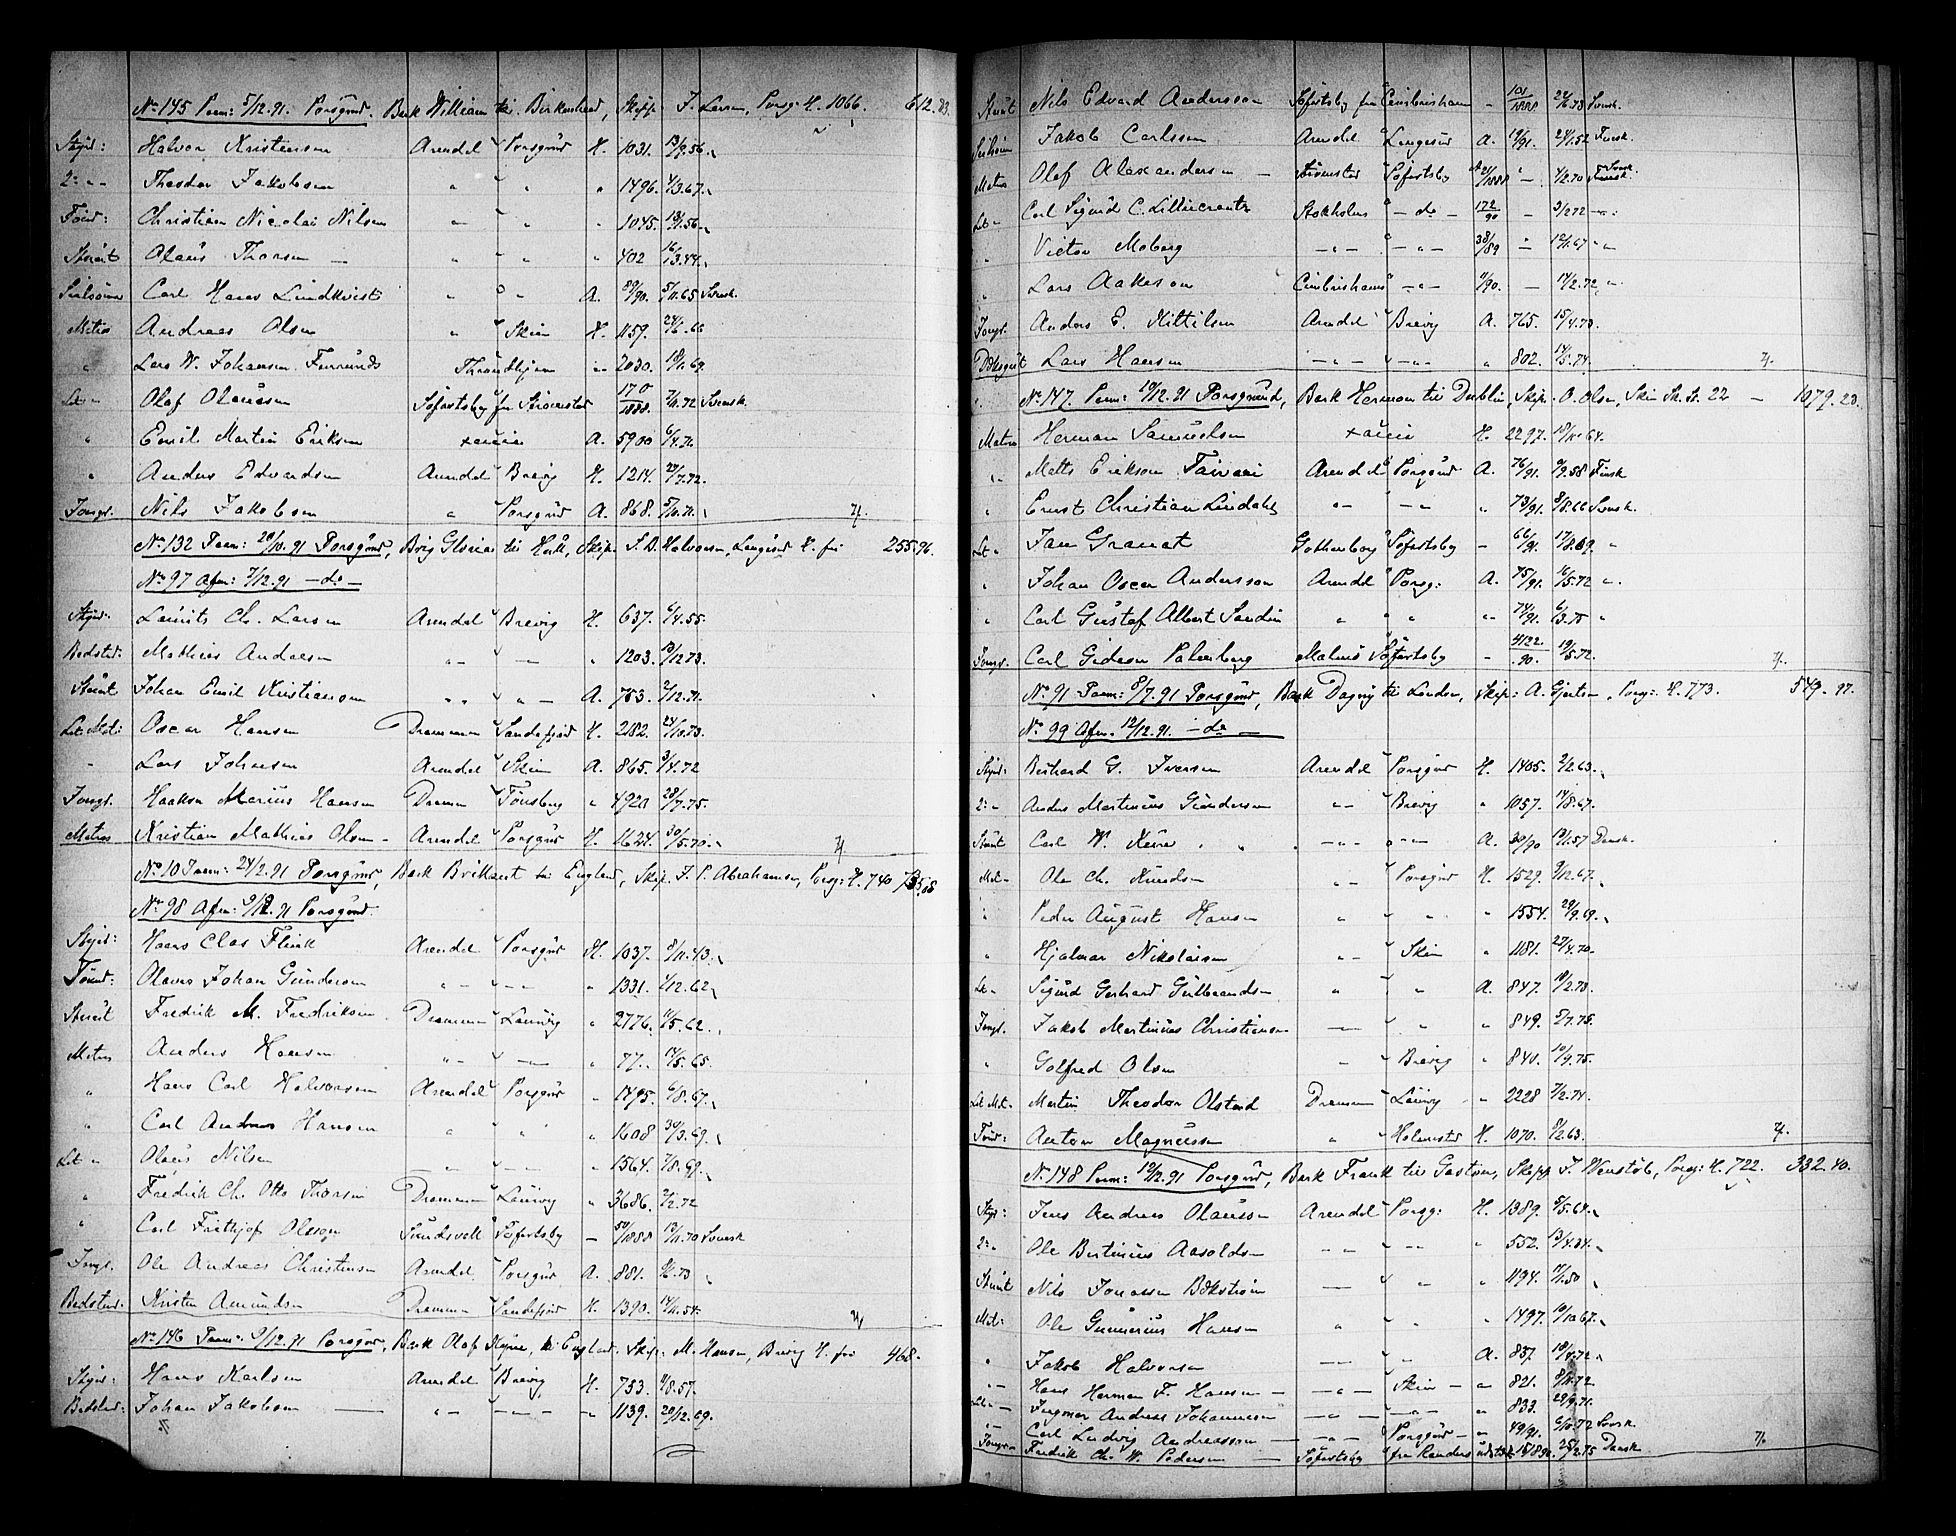 No 145 Paam: 5/12.91. Porsgrund. Bark William til Birkenhead, Skipp. J. Larsen, Porsg: H. 1066. 612.83.
Styrd: Halvor Kristensen Arendal Porsgrund H. 1031. 13/9.56.
2: " - Theodor Jakobsen " " " 1496. 4/3.67.
Tømd: Christian Nicolai Nilsen " " " 1045. .56.
Stuert Olaüs Thorsen — " " " 402 16/3.44.
Seilsømm Carl Hans Lindkvist " " A. /90. 5/11.65 Svensk.
Matros Andreas Olsen " Skien H. 1159. 24/6.66
" Lars W. Johansen Throndhjem " 2030. .69.
Let " Olaf Olaüsen Søfartsby fra Strømstad 170/1888. 7/11.72 Svensk.
" Emil Martin Eriksen A. 5900 6/4.71.
" Anders Edvardsen Arendal Brevig H. 1214. 27/7.72.
Jongf. Nils Jakobsen " Porsgrund A. 868. 5/10.71. 7/.
No 132 Paam: 20/10.91 Porsgrund, Brig Glorias til Skip. S. B. Halvorsen, Langesund H. fri 255.96.
No 97 Afm: 7/12.91 — do —
Styrd: Laurits Ch. Larsen Arendal Brevig H. 637. 6/4.55.
Bedsted. Mathias Andersen " - " - " 1203. 13/12 73.
Stuert Johan Emil Kristiansen " " " A. 753. 2/12.71.
Let Mat: Oscar Hansen Drammen Sandefjord H. 2182. 24/10.73.
" Lars Johnsen Arendal Skien A. 865. 3/4.72
Jongf. Haakon Marius Hansen Drammen Tønsberg " 4920 28/7.75.
Matros Kristian Mathias Olsen - Arendal Porsgrund H. 1624. 30/5.70. 7/.
No 10 Paam: 24/2.91 Porsgrund, Bark Brillant til England, Skip. J. P. Abrahamsen, Porsg: H. 740
No 98 Afm: 9/12.91 Porsgrund.
Styrd: Hans Clas Flink Arendal Porsgrund H. 1037. 8/11.43.
Tømd: Olaves Johan Gundersen " - " - " 1331. 1/12.62.
Stuert Fredrik M. Fredriksen. Drammen Laurvig " 2776. 11/5.62.
Matros Anders Hansen " - " - " 77. 14/5.65.
" Hans Carl Halvorsen Arendal Porsgrund " 1495. 6/8.67.
" Carl Andreas Hansen " " " 1608 30/3.69.
Let " Olaüs Nilsen " - " 1564. 7/8.69.
" Fredrik Ch. Otto Thorsen Drammen Laurvig " 3686. 2/2.72
" Carl Frithjof Olsson Sundsvall Søfartsby — 50/1888 13/11.70 Svensk
Jongf. Ole Andreas Christensen Arendal Porsgrund A. 881. .73
Bedsted. Kristen Amundsen Drammen Sandefjord H. 1390. 14/11.54. 7/.
No 146 Paam: 9/12.91 Porsgrund, Bark Olaf Kyrre, til England. Skip: M. Hansen, Brevig H. fri 468.
Styrd: Hans Karlsen Arendal Brevig H. 753. .57.
Bedsted. Johan Jakobsen — " - — " — " 1139. 20/12.69.
Stuert Nils Edvard Andersson Søfartsby fra Cimbrishamn - 101/1888 24/6.78 Svensk.
Seilsømm Jakob Carlsson Arendal Langesund A. 19/91. 24/1.52 Finsk.
Matros Olaf Alexandersen — Strømstad Søfartsby /1888 — 4/2.70 Svensk.
Let " Carl Sigurd C. Lilliecreutz Stokholm — do — 172/90 — 3/2 72 — " :
" Victor Moberg — " — — " — 38/89 — .67 "
" Lars Aakeson Cimbrishamn — " — /90. — 14/2.72 "
Jongf. Anders E. Kittilsen Arendal Brevig A. 765. 15/4.73.
Dæksgut Lars Hansen — " — — " - " 802. 14/5.74. 7/.
No 147. Paam: 10/12.91 Porsgrund, Bark Herman til Dublin, Skip. O. Olsen, Skien Sk. St. 22 — 1079.23.
Matros Herman Samuelsen H. 2297. .64.
" - Matts Erikson Taivari Arendal Porsgrund A. 76/91. 9/9.58 Finsk
" Ernst Christian Lindahl " - — " " 73/91. 8/8.66 Svensk.
Let " Jan Granat Gothenborg Søfartsby - 66/91. 17/8.69. "
" Johan Oscar Andersson Arendal Porsg: A. 75/91. 16/5.72 ".
" Carl Gustaf Albert Sandin " " " 74/91. 6/3.75 "
Jongf. Carl Gideon Palmberg Malmö Søfartsby - 4122/90. 19/5.72. 7/.
No 91 Paam: 8/7.91 Porsgrund, Bark Dagny til London, Skip: A. Gjertsen, Porsg: H. 773. 549.97.
No 99 Afm. 12/12.91. — do —
Styrd: Berthard G. Iversen Arendal Porsgrund H. 1405. 2/2.63.
2: " Anders Martinius Gundersen " - Brevig " 1057. 14/8.67.
Stuert Carl W. — " — " — " A. 30/90 19/11.57 Dansk.
Mat. " Ole Ch. Knudsen " - Porsgrund H. 1529. 9/12.67.
" Peder August Hansen " " " 1554. 29/9.69.
" Hjalmar Nikolaisen " - Skien " 1181. 27/4.70.
Let " Sigurd Gerhard Gulbrandsen " " A. 847. 18/2.73.
Jongf. Jakob Martinius Christiansen — " " 849. 5/7.75.
" Golfred Olsen " - Brevig " 840. 10/9.75.
Let Mat. Martin Theodor Olstad Drammen Laurvig " 2228 7/2.74.
Tømd: Anton Magnussen " Holmestrand H. 1070. 8/2.63. 7/.
No 148 Paam: 12/12.91 Porsgrund, Bark Frank til Gaston, Skipp J. Wenstøb, Porsg: H. 722. 332.40.
Styr: Jens Andreas Olaussen Arendal Porsg: H. 1389. 5/5.64.
2: " Ole Bertinius Aasoldsen " - " - " 552. 13/4.34.
Stuert Nils Jonassen Bækstrøm — " " 1194. .50
Mat: Ole Gunnerius Hansen " " " 1497. 10/10 67.
" Jakob Halvorsen — " A. 857. 18/4.72
" - Hans Herman F. Hansen — — " — Skien — " 821. 8/11.72
Let " Ingmar Andreas Johannesen — " — — " — " 833. 29/9.71.
" Carl Ludvig Andreassen — — " — Porsgrund — " 49/91. 6/10.72 Svensk.
Jongf. Fredrik Chr. W. Pedersen — Søfartsby fra Randers 2/2.75 Dansk 7/.